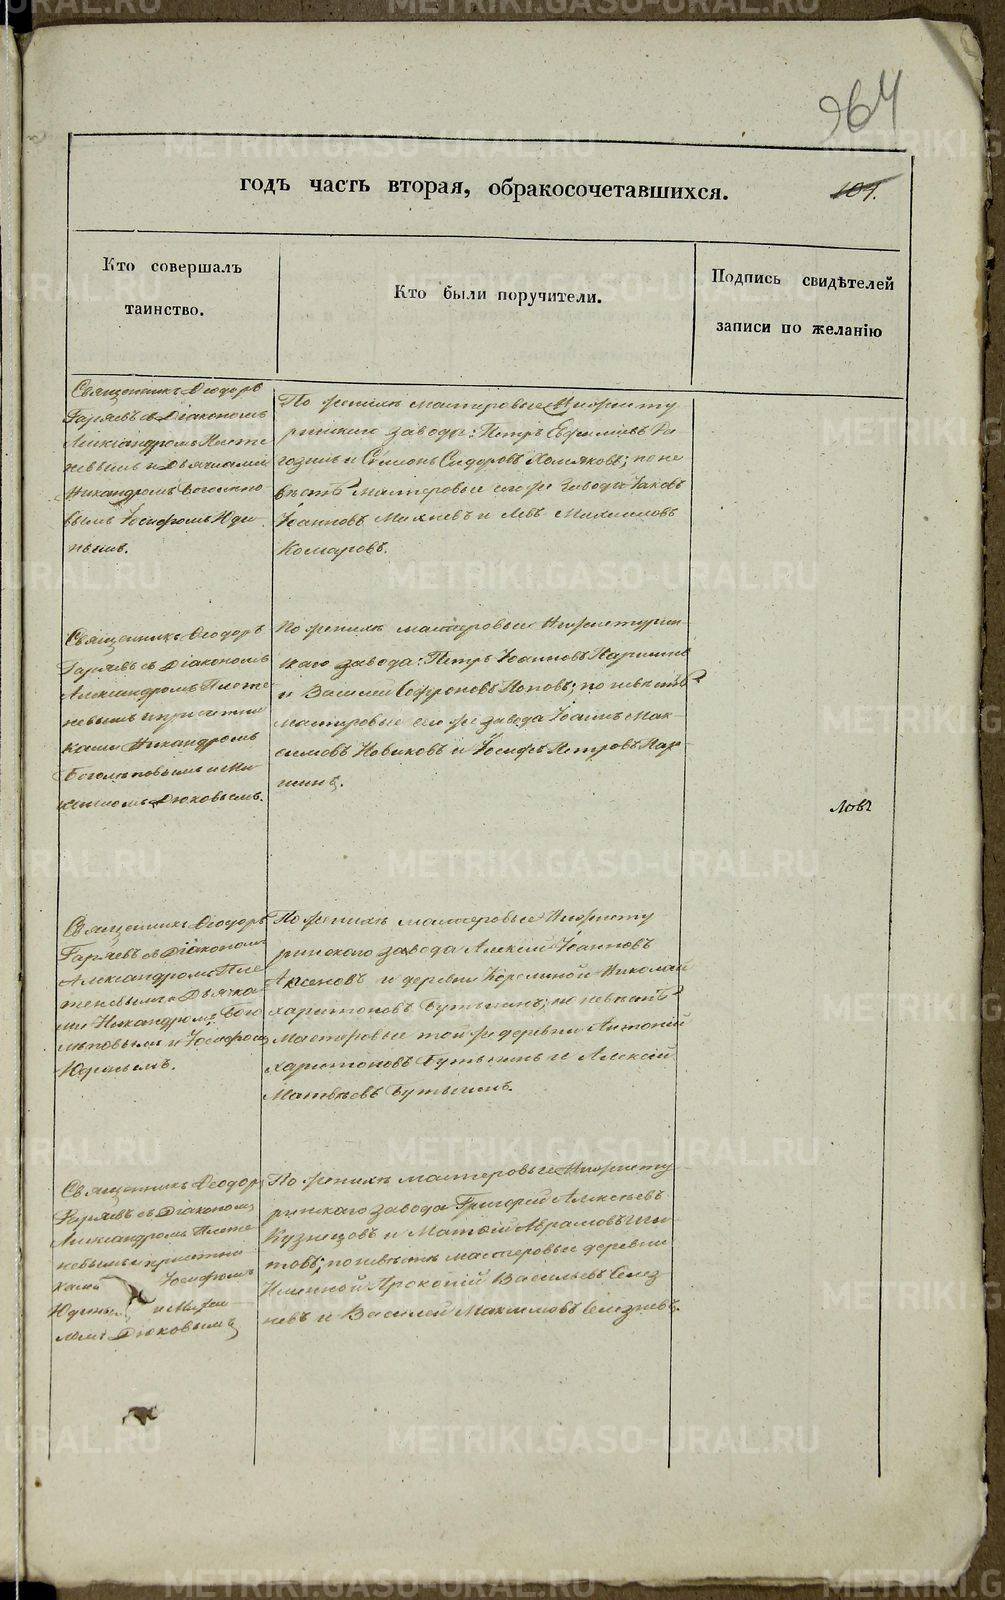 964
годъ часть вторая, обракосочетавшихся.
101.
Кто совершалъ
таинство.
Кто были поручители.
Подпись свидѣтелей
записи по желанію
Священникъ Ѳеодоръ
Гаряевъ съ Діакономъ
Александромъ Плете
невымъ и Дьячками
Никандромъ Боголѣпо
вымъ Іосифомъ Юди
нымъ.
По женихѣ мастеровые Нижнету
ринскаго завода: Петръ Евфимьевъ Ра
гозинъ и Симеонъ Сидоровъ Хомяковъ; по не
вѣстѣ мастеровые сего же завода Іаковъ
Іоанновъ Махневъ и Левъ Михаиловъ
Комаровъ.
Священникъ Ѳеодоръ
Гаряевъ съ Діакономъ
Александромъ Плете
невымъ и причетни
ками Никандромъ
Боголѣповымъ и Ми
хаиломъ Дюковымъ.
По женихѣ мастеровые Нижнетурин-
скаго завода: Петръ Іоанновъ
и Василей Софроновъ Поповъ; по невѣстѣ
мастеровые сего же завода Іоаннъ Мак-
симовъ Новиковъ и Іосифъ Петровъ Пар-
шинъ.
Ловъ
Священникъ Ѳеодоръ
Гаряевъ съ Діакономъ
Александромъ Пле
теневымъ и Дьячка
ми Никандромъ Бого
лѣповымъ и Іосифомъ
Юдинымъ.
По женихѣ мастеровые Нижнету
ринскаго завода Алексѣй Іоанновъ
Аксеновъ и деревни Николай
Харитоновъ Бутыгинъ; по невѣстѣ
Мастеровые той же деревни Антоній
Харитоновъ Бутыгинъ и Алексѣй
Матвѣевъ Бутыгинъ.
Священникъ Ѳеодоръ
Гаряевъ съ Діакономъ
Александромъ Плете
невымъ и причетни
ками Іосифомъ
Юдины и Михаи
ломъ Дюковымъ
По женихѣ мастеровые Нижнету
ринскаго завода Григорій Алексѣевъ
Кузнецовъ и Матѳій Аврамовъ Ши
товъ; по невѣстѣ мастеровые деревни
Прокопій Васильевъ Селез
невъ и Василей Максимовъ Селезневъ.
METRIKI.GASO-URAL.RU